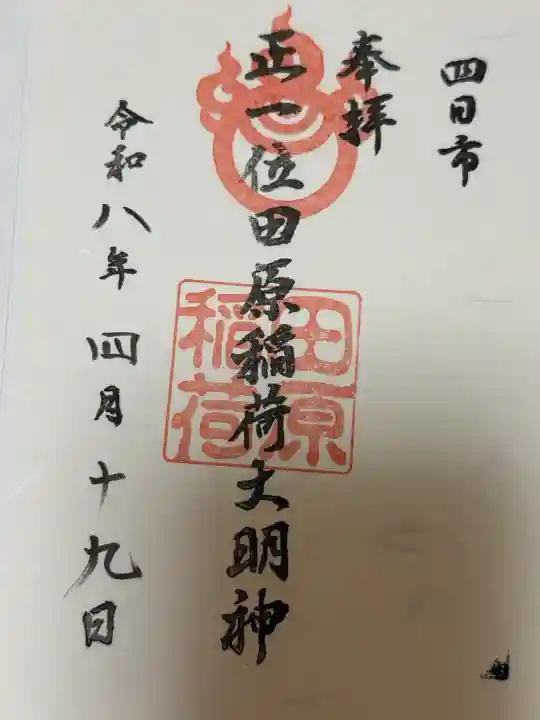 四日市
奉拝
正一位田原稲荷大明神
田原
稲荷
令和八年四月十九日